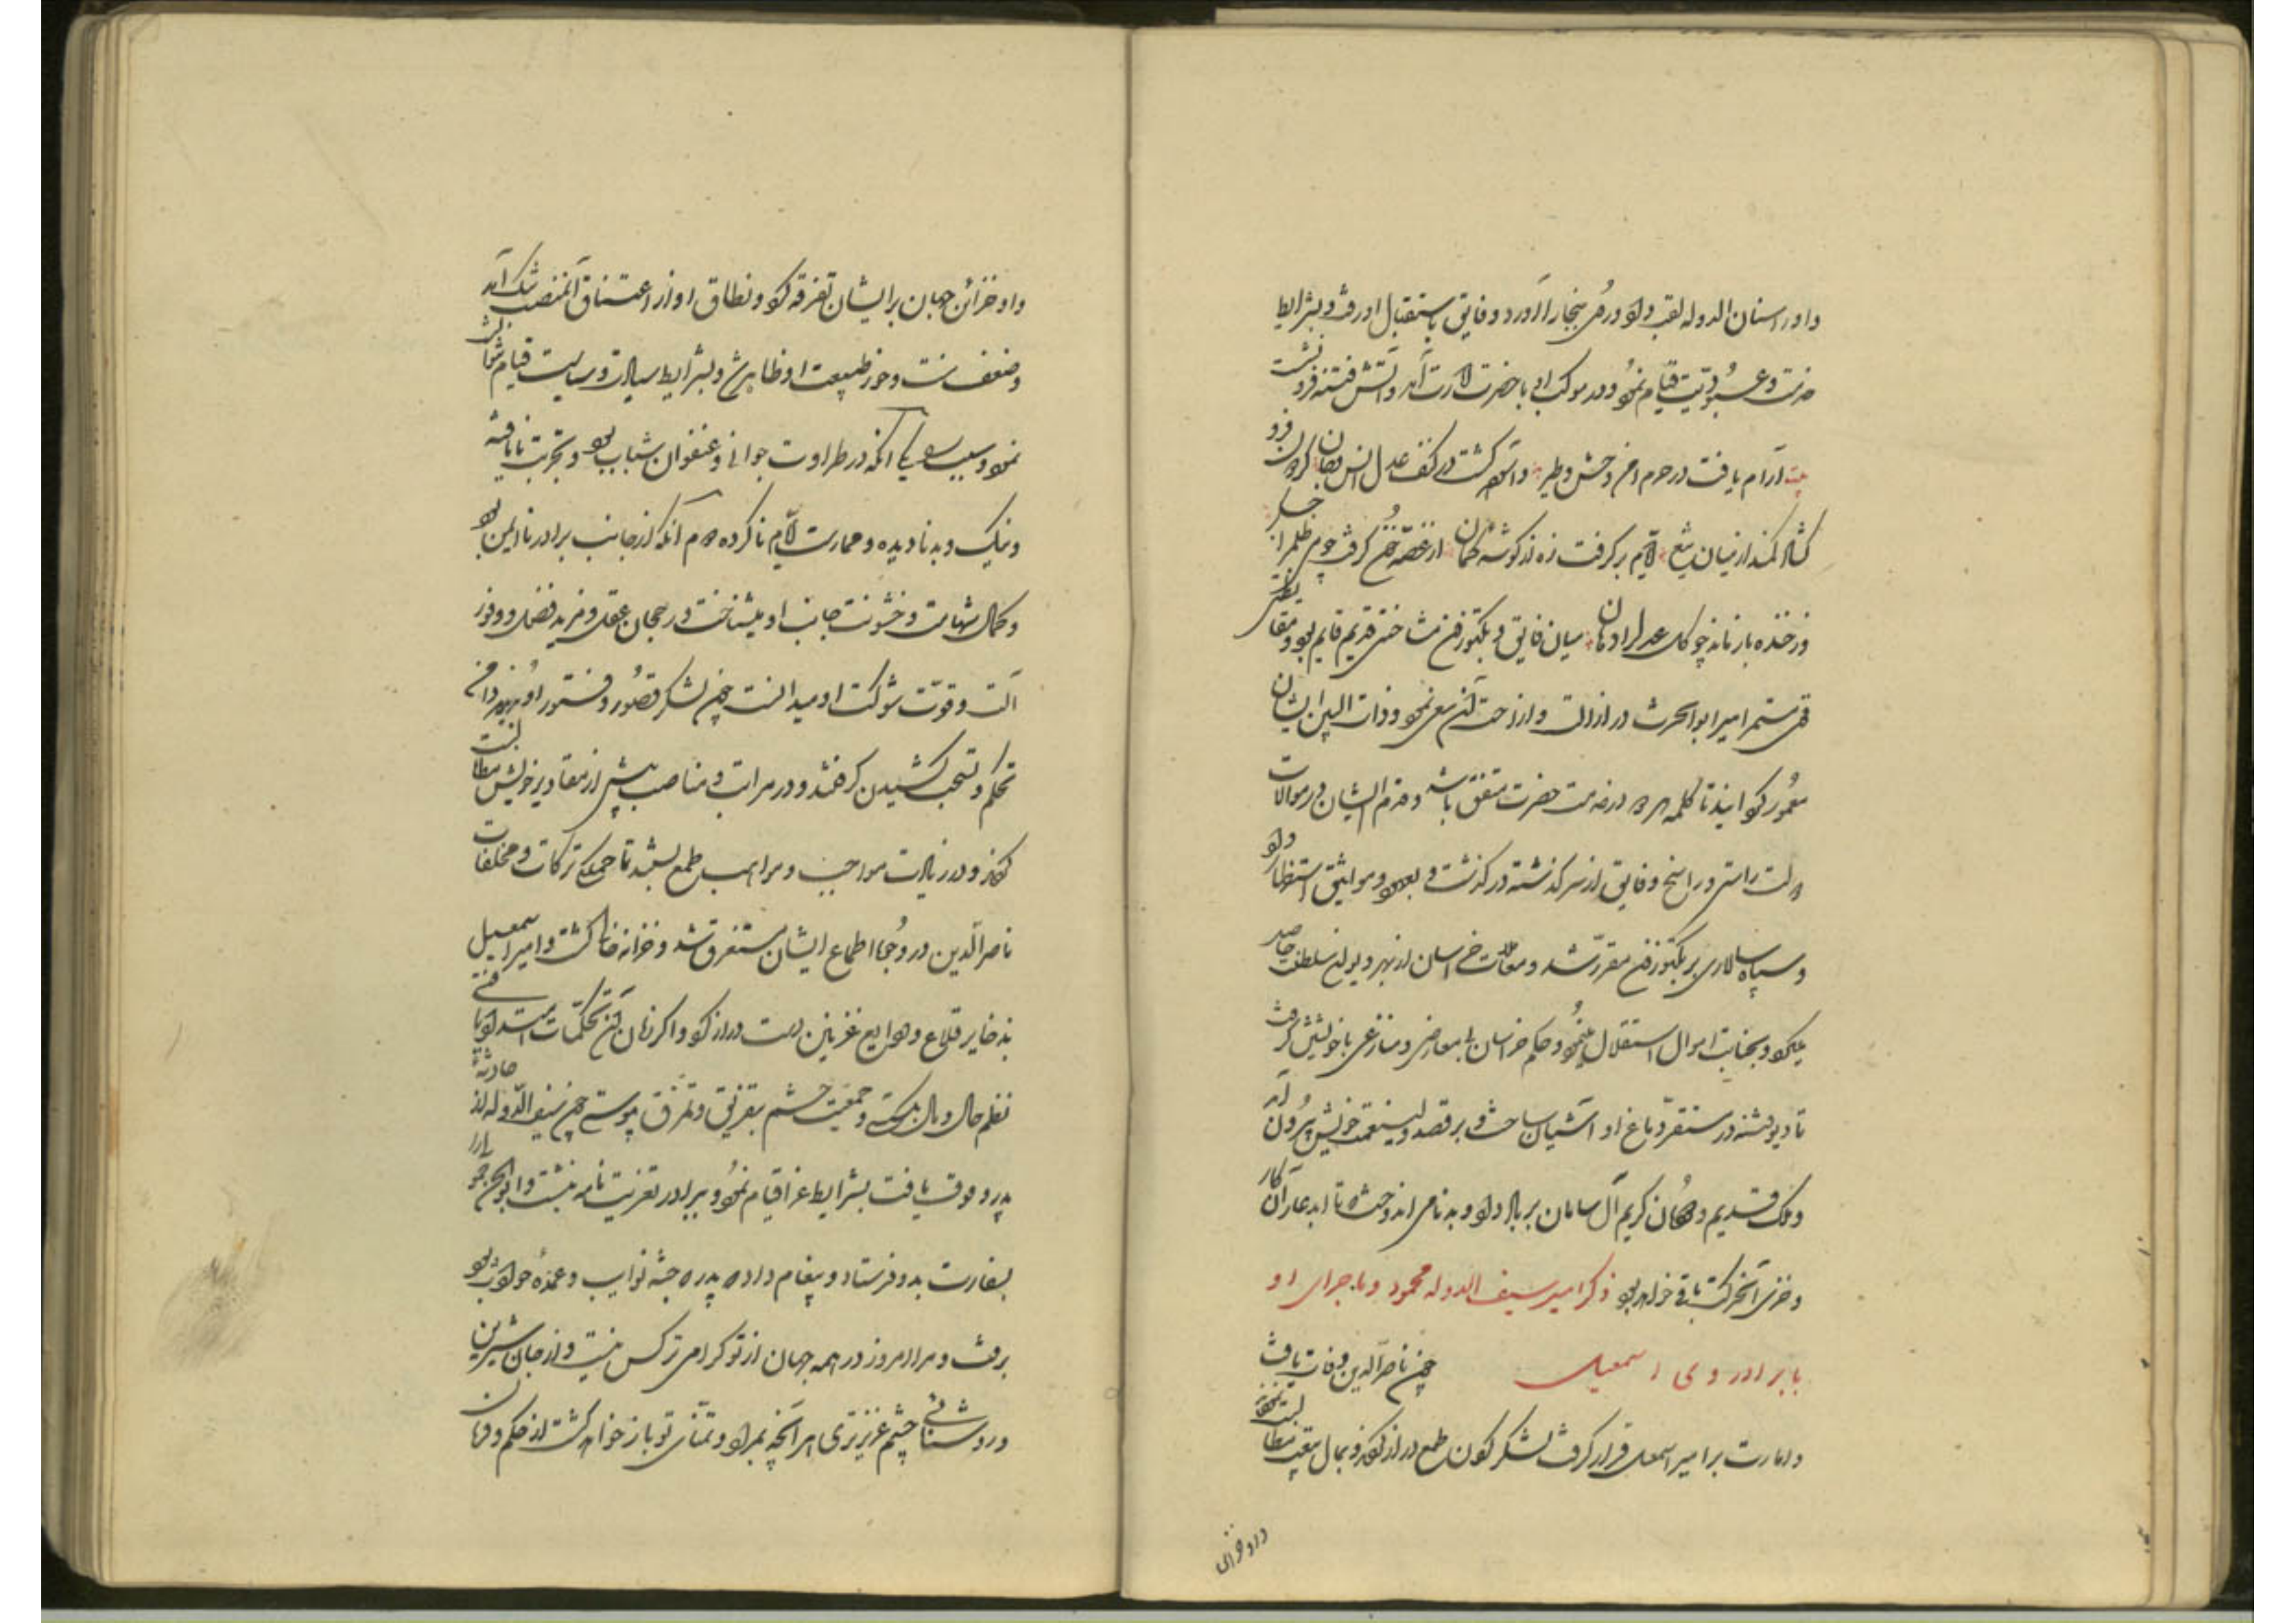 و او را سنان الدوله لقب داد و در ببخارا آورد و فایق باستقبال او رفت و بشرایط
خدمت و عبودیت قیام نمود و در موکب او با حضرت امارت آمد و آتش فتنه فرو نشست
بیت آرام یافت در حرم امن وحش و طیر و آسوده گشت در کنف عدل انس و جان گردون فرو
گشاد کمند از میان تیغ و ایام برگرفت زه از گوشه کمان از غصه خون گرفت چو می ظلم را جگر
وز خنده باز ماند چو گل عدل را دهان میان فایق و بکتوزون مشاحنتی قدیم قایم بود و مقاطعتی
مستمر امیر ابوالحرث در ازالت و ازاحت آن سعی نمود و ذات البین ایشان
معمور گردانید تا کلمه در خدمت حضرت متفق باشند و قدم ایشان در موالات
دولت راست و راسخ و فایق از سر گذشته در گذشت و بعهود و مواثیق استظهار داد
و سپاه سالاری بر بکتوزون مقرر شد و معاملات خراسان از بهر دیوان سلطنت حاصل
میکرد و بجنایت اموال استقلال مینمود و حکم خراسان بی معارضی و منازعی با خویشتن گرفت
تا دیو فتنه در مستقر دماغ او آشیان ساخت و بر قصد ولینعمت خویش بیرون آمد
و ملک قدیم و خاندان کریم آل سامان بر باد داد و بدنامی اندوخت که تا ابد عار آن کار
و خزی آن حرکت باقی خواهد بود ذکر امیر سیف الدوله محمود و ماجرای او
با برادر وی اسمعیل چون ناصرالدین وفات یافت
و امارت بر امیر اسمعیل قرار گرفت لشکر گردن طمع دراز کردند و بمال بیعت مطالبت نمودند
داد و خزاین
و او خزائن جهان بر ایشان تفرقه کرد و نطاق او از اعتناق آن منصب تنگ آمد
و ضعف منت و خور طبیعت او ظاهر شد و بشرایط سیادت و سیاست قیام نتوانست
نمود و سبب یکی آنکه در طراوت جوانی و عنفوان شباب بود و تجربت نایافته
و نیک و بد نادیده و ممارست ایام ناکرده دوم آنکه از جانب برادر ناایمن بود
و کمال شهامت و خشونت جانب او میشناخت و رجحان عقل و مزید فضل و وفور
آلت و قوت شوکت او میدانست چون لشکر قصور و فتور او بدیدند
تحکم و تسحب کشیدن گرفتند و در مراتب و مناصب بیش از مقادیر خویش مطالبت
کردند و در زیادت مواجب و مراهب طمع بستند تا جملگی ترکات و مخلفات
ناصرالدین در وجوه اطماع ایشان مستغرق شد و خزانه خالی گشت و امیر اسمعیل
بذخایر قلاع و ودایع غزنین دست دراز کرد و اگر زمان آن تحکمات امتداد یافتی
نظم حال و مال بگسستی و جمعیت حشم بتفریق و تمزق پیوستی چون سیف الدوله از حادثه
پدر وقوف یافت بشرایط عزا قیام نمود و ببرادر تعزیت نامه نبشت و ابوالحسن حمولی را
بسفارت بدو فرستاد و پیغام داد که پدر که جنه نوایب و عمده حوادث بود
برفت و مرا امروز در همه جهان از تو گرامی تر کس نیست و از جان شیرین
و روشنائی چشم عزیزتری هر آنچه بمراد و تمنای تو باز خواهد گشت از حکم و فرمان